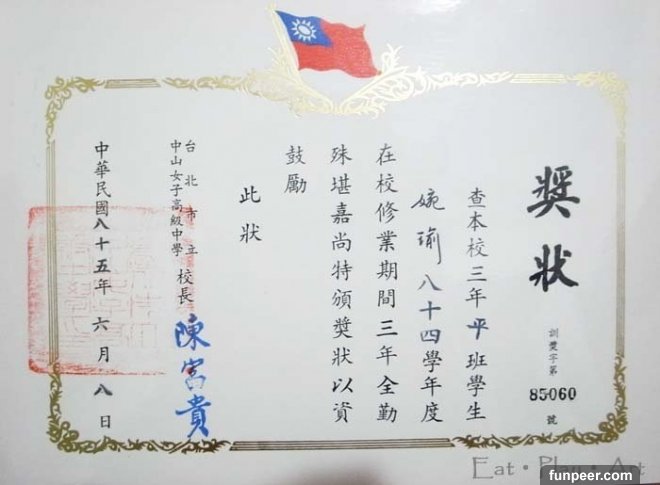 獎狀
訓獎字第
85060
號
查本校三年平班學生
婉瑜八十四學年度
在校修業期間三年全勤
殊堪嘉尚特頒獎狀以資
鼓勵
此狀
台北市立
中山女子高級中學
校長
陳富貴
中華民國八十五年六月八日
Eat·Play·Art
funpeer.com